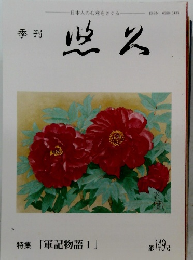 日本人の心を考える
季刊
悠久
特集「軍記物語Ⅰ」
第149号